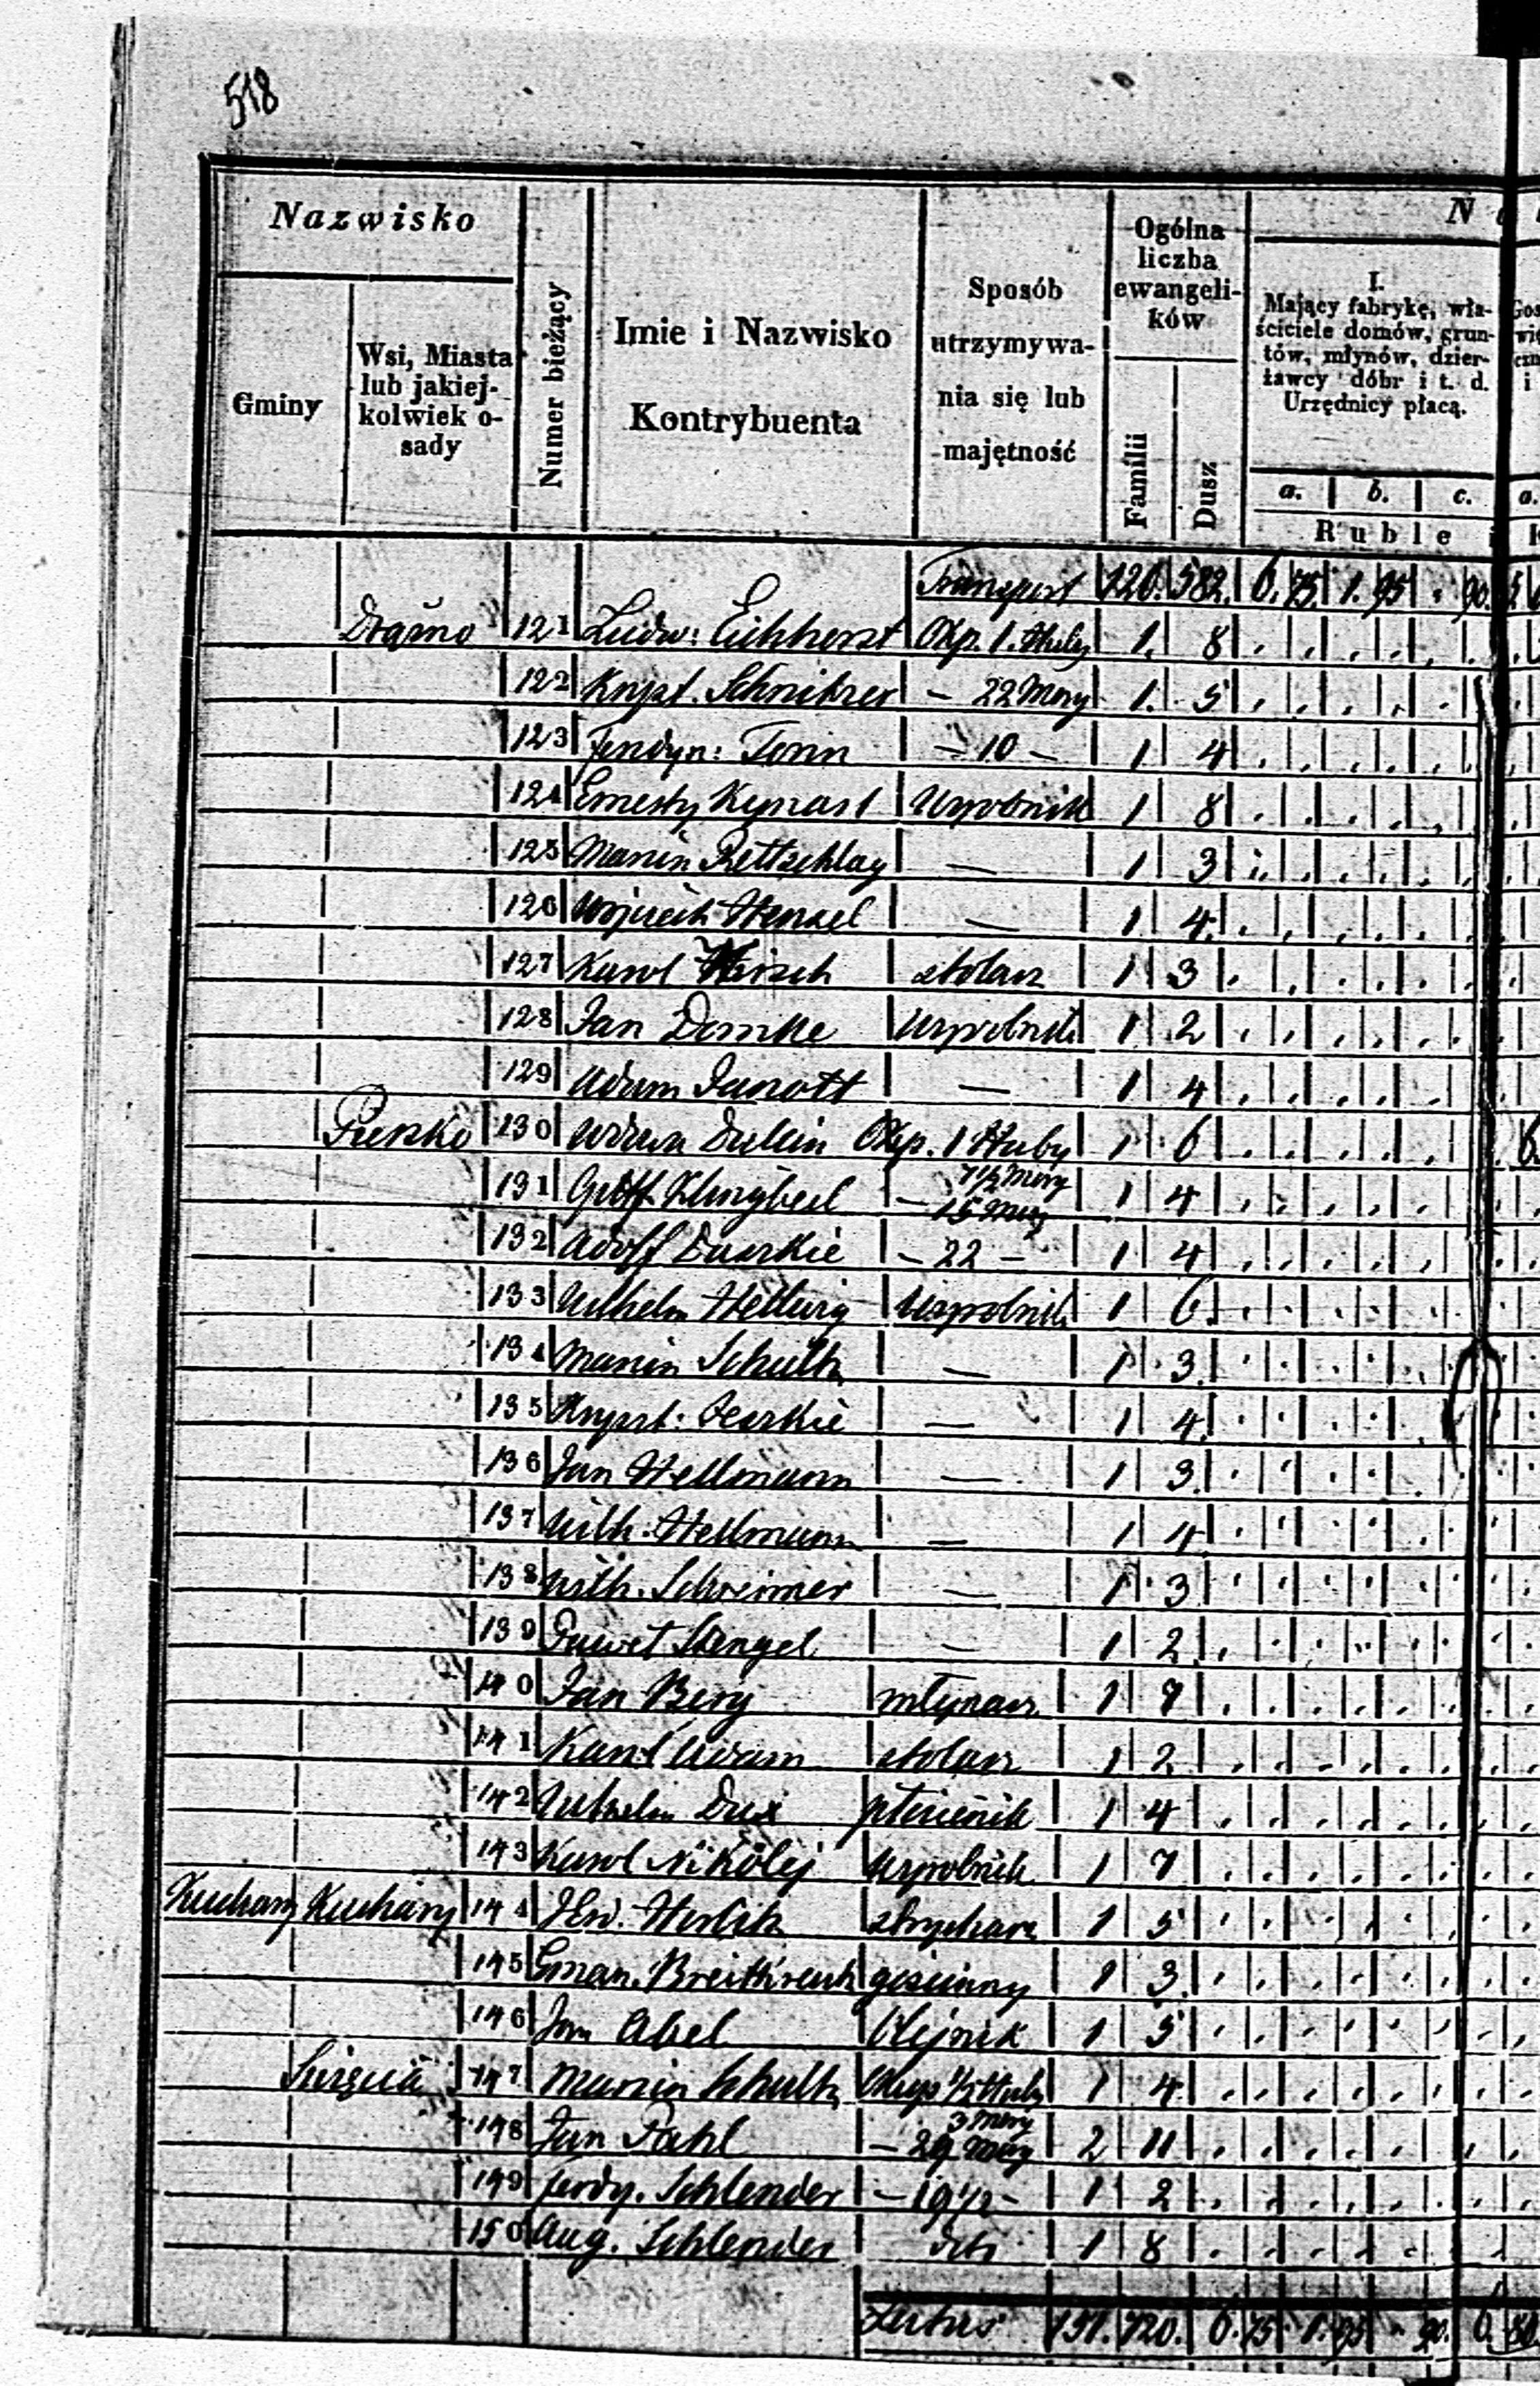 518
Nazwisko
Gminy
Wsi, Miasta lub jakiej-kolwiek o-sady
Numer bieżący
Imie i Nazwisko Kontrybuenta
Sposób utrzymywa-nia się lub majętność
Ogólna liczba ewangeli-ków
Familii
Dusz
N
I.
Mający fabrykę, wła-
ściciele domów, grun-
tów, młynów, dzier-
żawcy dóbr i t. d.
Urzędnicy płacą.
a. b. c. a.
Ruble
Transport 120. 582. 6. 75. 1. 95 . 90.
121 Ludw: Eichhorst Okp. 1. Huby 1. 8
122 Kryst. Schnitzer — 22 Morg 1. 5
123 Ferdyn: Tonn — 10 — 1 4
124 Ernesty Kynast Wyrobnik 1 8
125 Marcin Rettschlag — 1 3
126 Wojciech Henzel — 1 4
127 Karol Hirsch stolarz 1 3
128 Jan Domke Wyrobnik 1 2
129 Adam Janott — 1 4
130 Okp. 1 Huby 1 6
131 Gottf. Klingbeil — 7½ Morg 15 Morg 1 4
132 Adolf — 22 — 1 4
133 Wilhelm Hellwig Wyrobnik 1 6
134 Marcin Schultz — 1 3
135 Kryst. — 1 4
136 Jan Hellmann — 1 3
137 Wilh. Hellmann — 1 4
138 Wilh. Schreimer — 1 3
139 Paweł Stengel — 1 2
140 Jan Berg młynarz 1 7
141 Karol Adam stolarz 1 2
142 Wilhelm Dux płóciennik 1 4
143 Karol Nikolej Wyrobnik 1 7
Kuchary Kuchary 144 strycharz 1 5
145 Eman. Breitkreuh gościnny 1 3
146 Jan Abel Olejnik 1 5
147 Marcin Schultz Okup ½ Huby 1 4
148 Jan Pahl 3 Morg — 29 Morg 2 11
149 Ferdy. Schlender — 19½ — 1 2
150 Aug. Schlender dto 1 8
Latus 151. 720. 6. 75. 1. 95 . 90. 6.